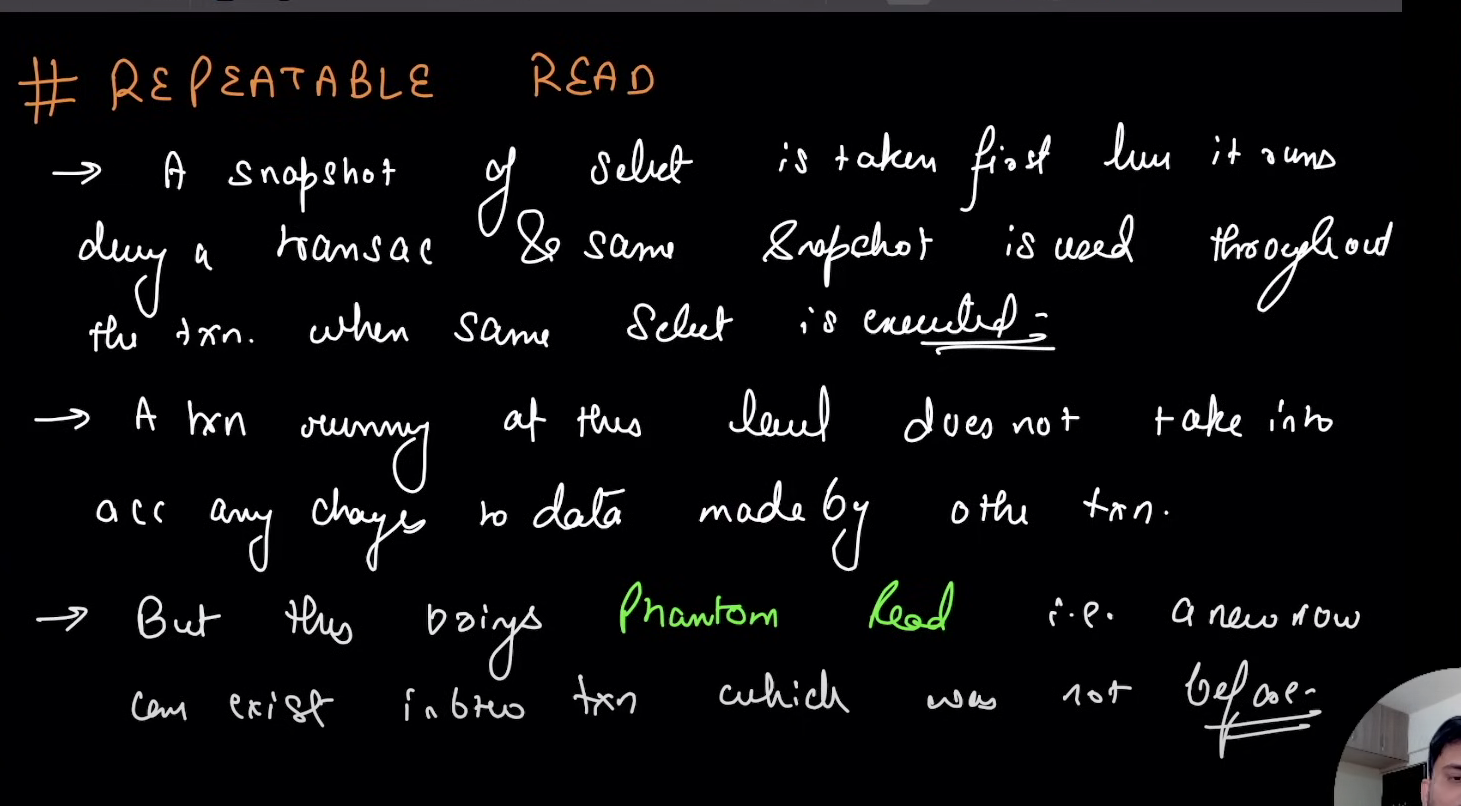 # REPEATABLE READ
→ A snapshot of select is taken first time it runs
during a transac & same snapshot is used throughout
the txn. when same Select is executed
→ A txn running at this level does not take into
acc any changes to data made by other txn.
→ But this brings Phantom Read i.e. a new row
can exist in btw txn which was not before